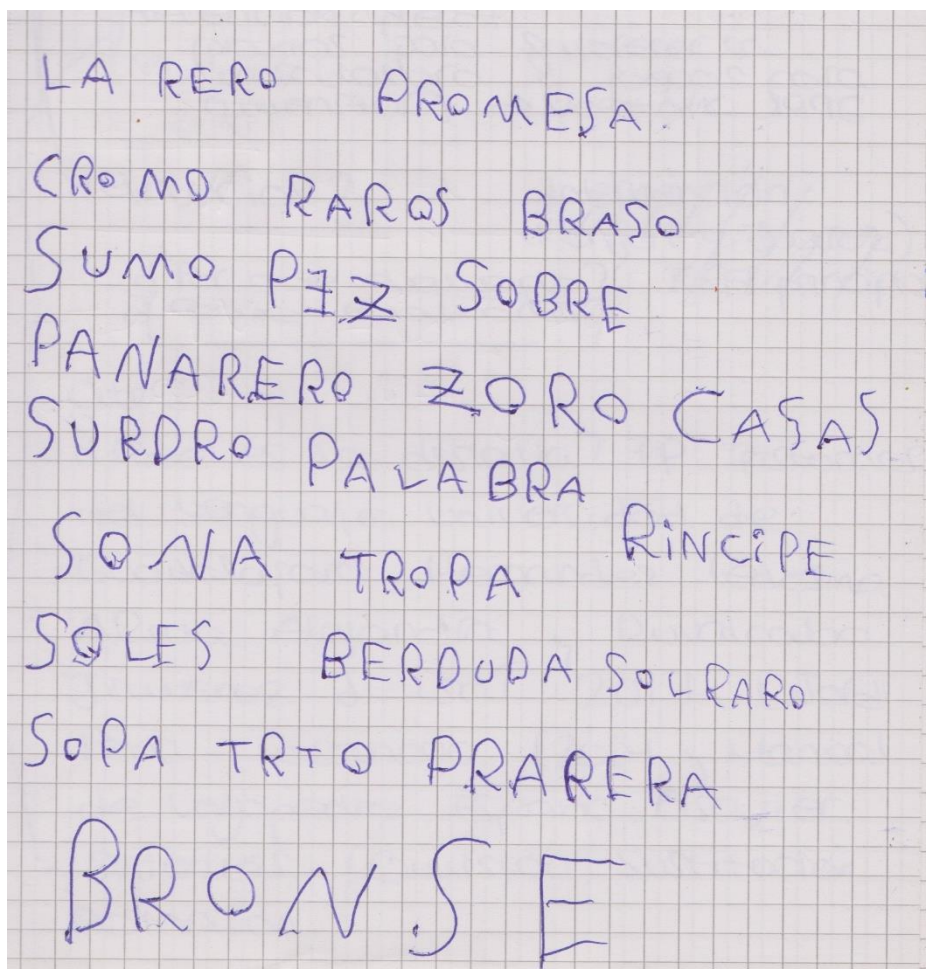 LA RERO PROMESA.
CROMO RAROS BRASO
SUMO PIZ SOBRE
PANARERO ZORO CASAS
SURDRO PALABRA
SONA TROPA RINCIPE
SOLES BERDUDA SOLRARO
SOPA TRTO PRARERA
BRONSE